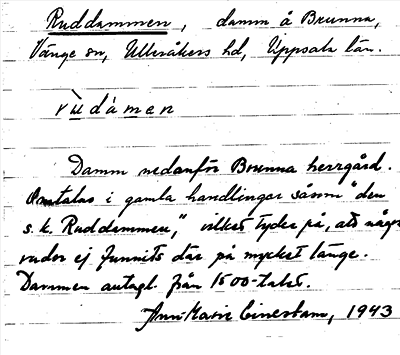 Ruddammen, damm å Brunna,
Vänge sn, Ulleråkers hd, Uppsala län.
rùdámen
Damm nedanför Brunna herrgård.
Omtalas i gamla handlingar såsom "den
s.k. Ruddammen," vilket tyder på, att några
rudor ej funnits där på mycket länge.
Dammen antagl. från 1500-talet.
Ann-Marie Cinestam, 1943